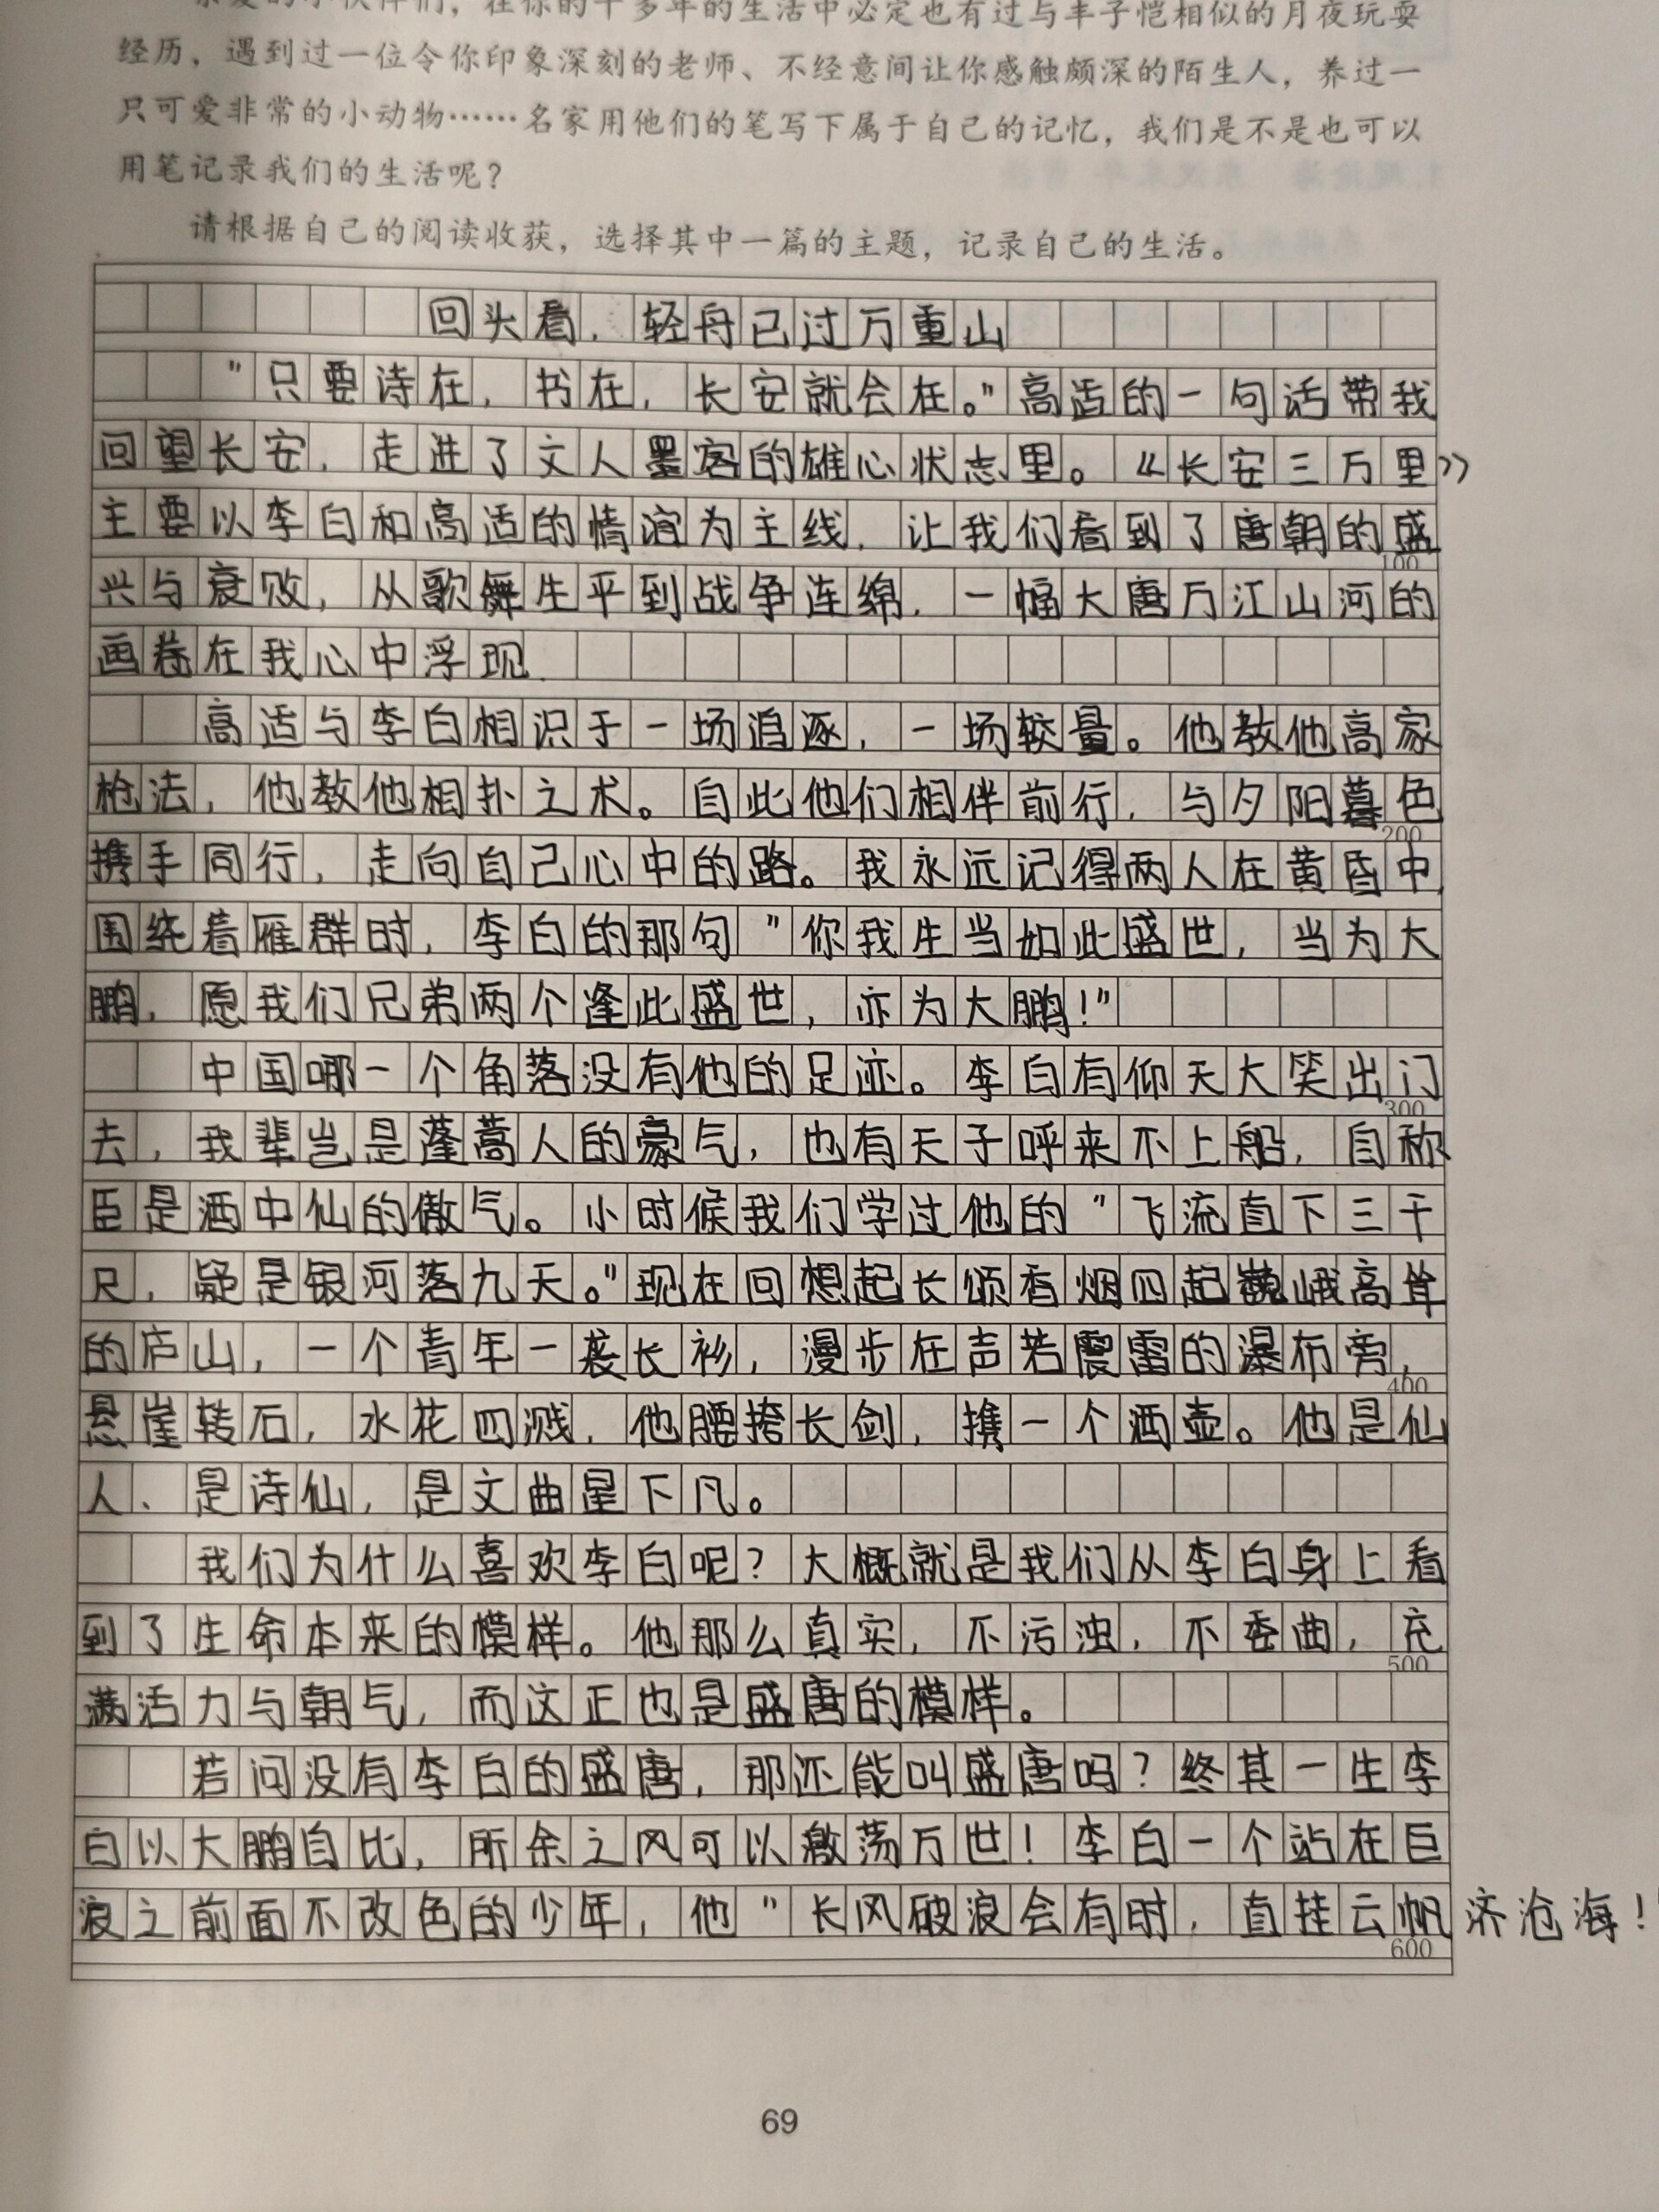 亲爱的小伙伴们，在你的十多年的生活中必定也有过与丰子恺相似的月夜玩耍
经历，遇到过一位令你印象深刻的老师、不经意间让你感触颇深的陌生人，养过一
只可爱非常的小动物……名家用他们的笔写下属于自己的记忆，我们是不是也可以
用笔记录我们的生活呢？
请根据自己的阅读收获，选择其中一篇的主题，记录自己的生活。
回头看，轻舟已过万重山
"只要诗在，书在，长安就会在。"高适的一句话带我
回望长安，走进了文人墨客的雄心状志里。《长安三万里》
主要以李白和高适的情谊为主线，让我们看到了唐朝的盛
100
兴与衰败，从歌舞生平到战争连绵，一幅大唐万江山河的
画卷在我心中浮现.
高适与李白相识于一场追逐，一场较量。他教他高家
枪法，他教他相扑之术。自此他们相伴前行，与夕阳暮色
200
携手同行，走向自己心中的路。我永远记得两人在黄昏中
围绕着雁群时，李白的那句"你我生当如此盛世，当为大
鹏，愿我们兄弟两个逢此盛世，亦为大鹏！"
中国哪一个角落没有他的足迹。李白有仰天大笑出门
300
去，我辈岂是蓬蒿人的豪气，也有天子呼来不上船，自称
臣是酒中仙的傲气。小时候我们学过他的"飞流直下三千
尺，疑是银河落九天。"现在回想起长颂香烟四起巍峨高耸
的庐山，一个青年一袭长衫，漫步在声若震雷的瀑布旁，
400
悬崖转石，水花四溅，他腰挎长剑，携一个酒壶。他是仙
人、是诗仙，是文曲星下凡。
我们为什么喜欢李白呢？大概就是我们从李白身上看
到了生命本来的模样。他那么真实，不污浊，不委曲，充
500
满活力与朝气，而这正也是盛唐的模样。
若问没有李白的盛唐，那还能叫盛唐吗？终其一生李
白以大鹏自比，所余之风可以激荡万世！李白一个站在巨
浪之前面不改色的少年，他"长风破浪会有时，直挂云帆济沧海！"
600
69